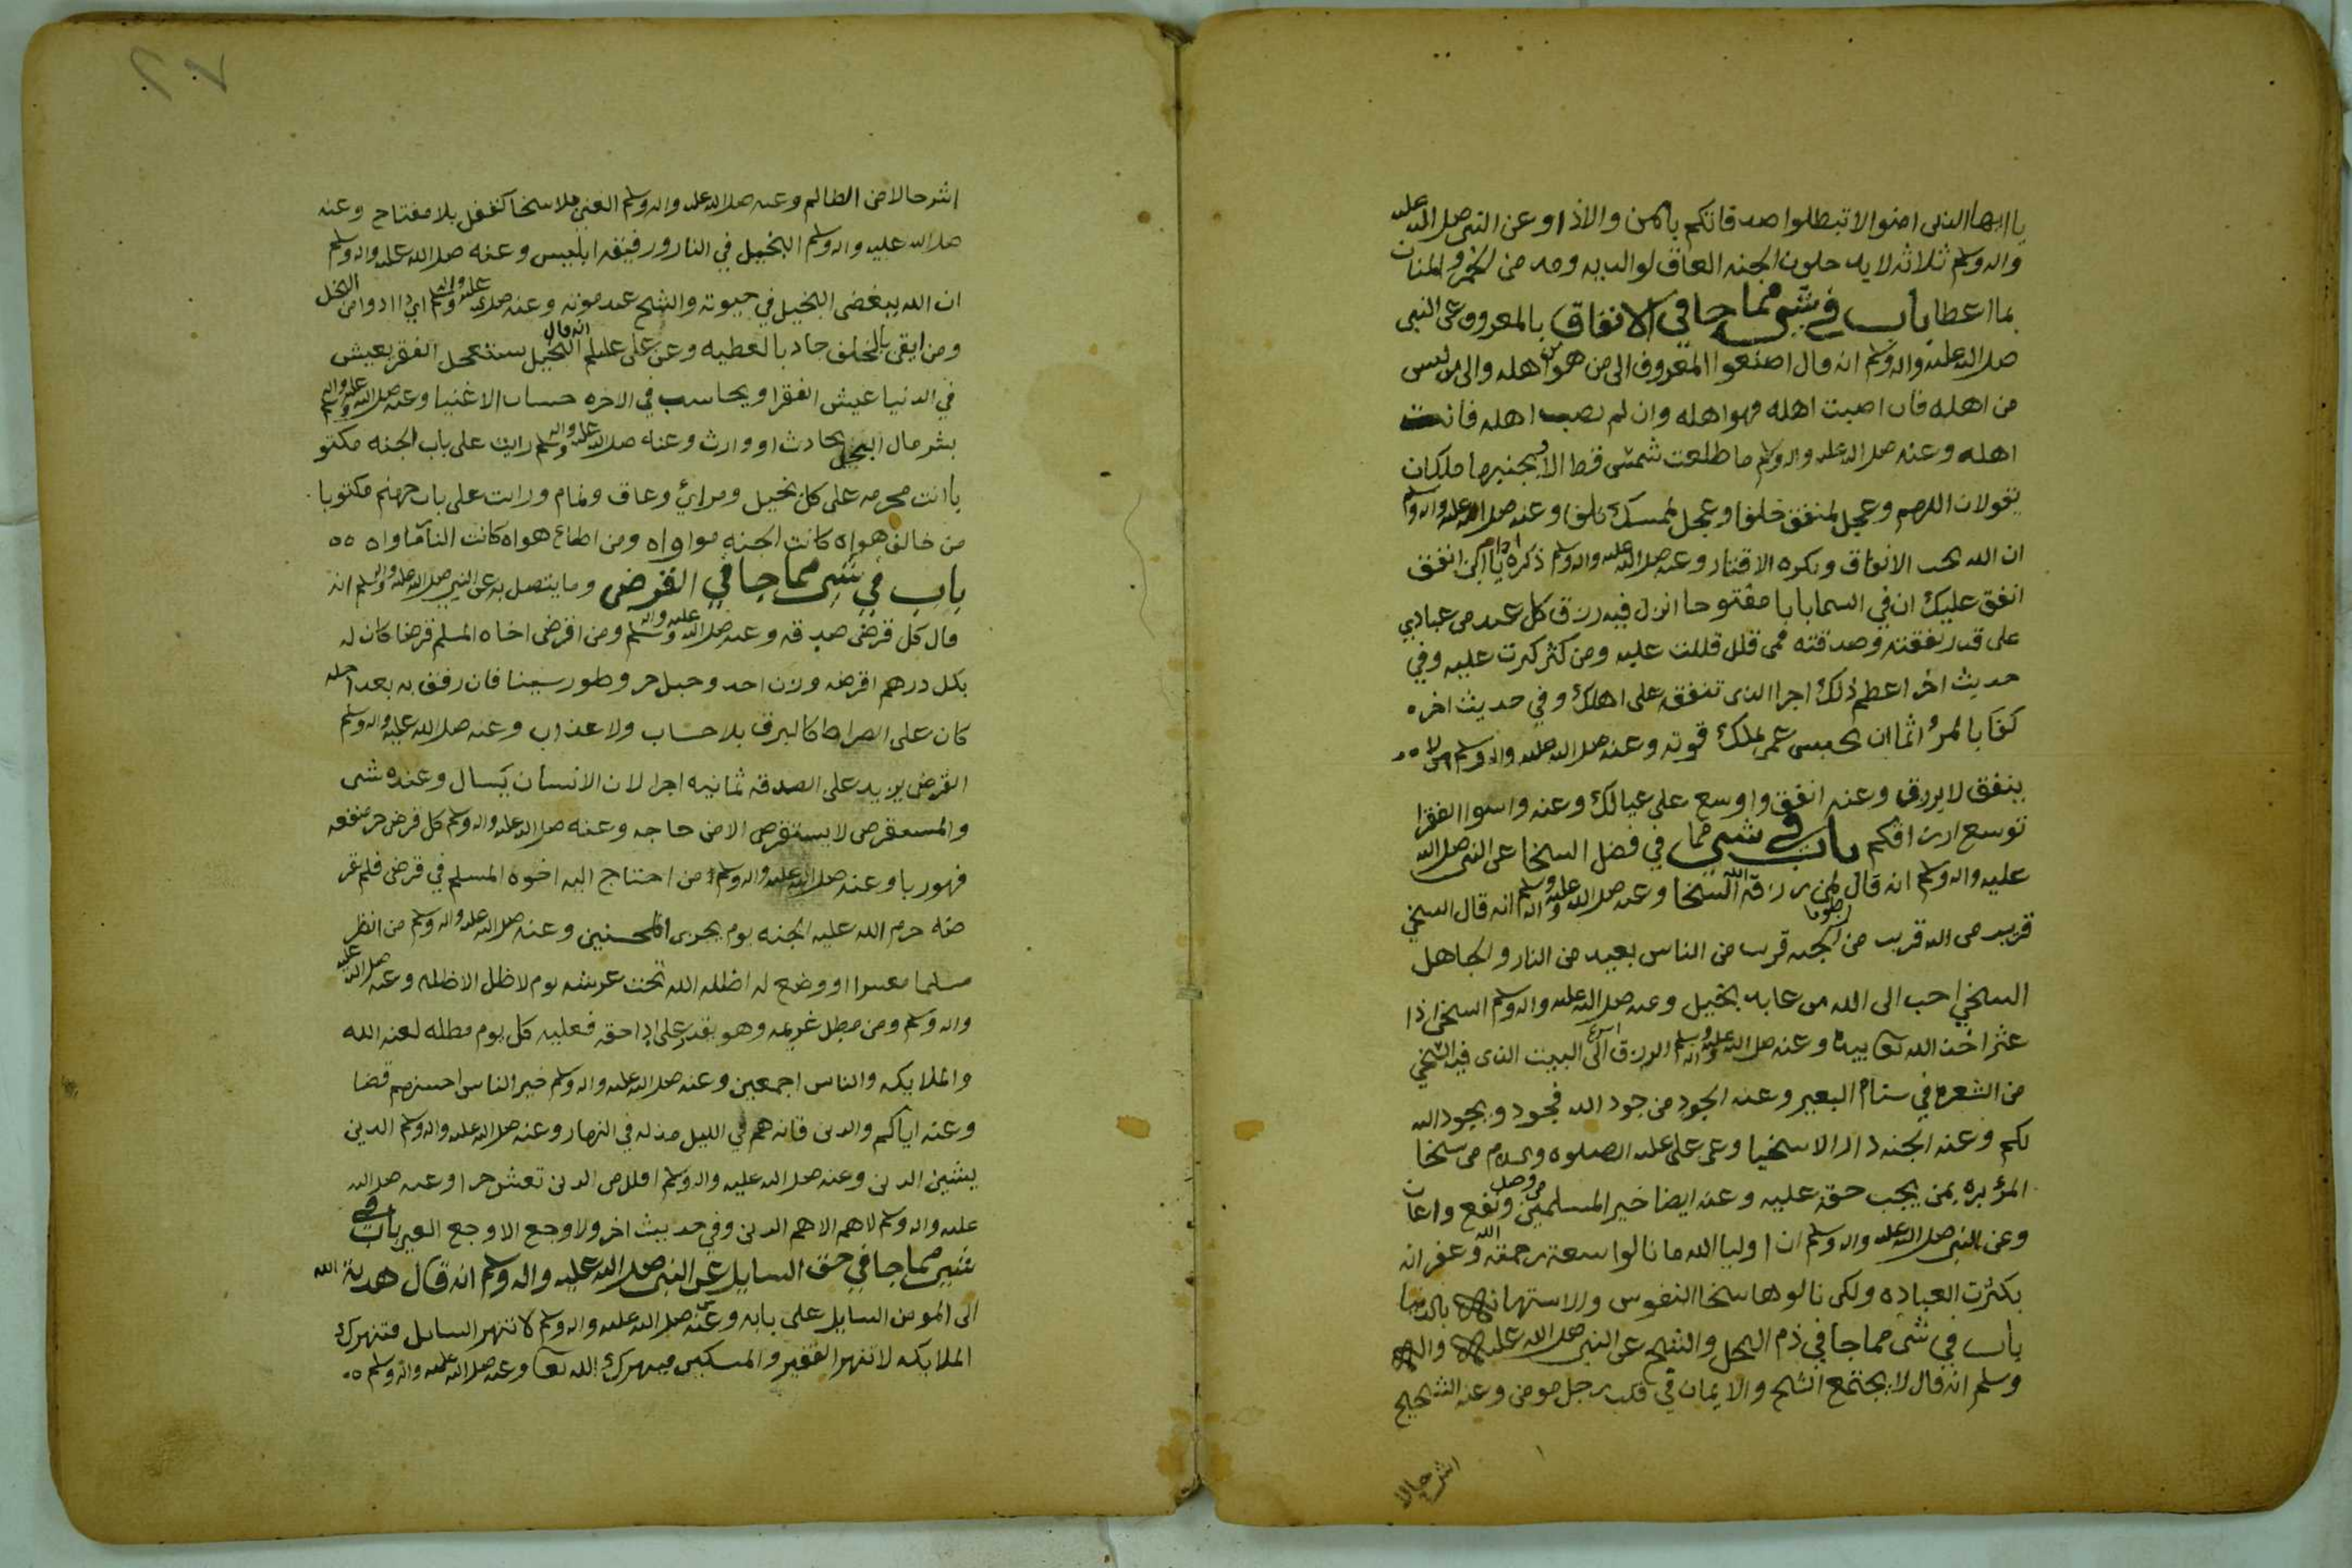 يا ايها الذين امنوا لا تبطلوا صدقاتكم بالمن والاذا وعن النبي صلى الله عليه
واله وسلم ثلاثه لا يدخلون الجنه العاق لوالديه ومدمن الخمر والمنان
بما اعطا باب في شي مما جا في الانفاق بالمعروف عن النبي
صلى الله عليه واله وسلم انه قال اصنعوا المعروف الى من هو من اهله والى من ليس
من اهله فان اصبت اهله فهو اهله وان لم تصب اهله فانت
اهله وعنه صلى الله عليه واله وسلم ما طلعت شمس قط الا بجنبيها ملكان
يقولان اللهم وعجل لمنفق خلفا وعجل لممسك تلفا وعنه صلى الله عليه واله وسلم
ان الله يحب الانفاق ويكره الاقتار وعنه صلى الله عليه واله وسلم انفق
انفق عليك ان في السما بابا مفتوحا انزل فيه رزق كل عبد من عبادي
على قدر نفقته وصدقته فمن قلل قللت عليه ومن كثر كثرت عليه وفي
حديث اخر اعظم ذلك اجرا الذي تنفقه على اهلك وفي حديث اخر
كفا بالمرء اثما ان يحبس عمن يملك قوته وعنه صلى الله عليه واله وسلم من لا
ينفق لا يرزق وعنه انفق واوسع على عيالك وعنه واسوا الفقرا
توسع ارزاقكم باب في شي مما في فضل السخا عن النبي صلى الله
عليه واله وسلم انه قال طوبا لمن رزقه الله السخا وعنه صلى الله عليه واله وسلم انه قال السخي
قريب من الله قريب من الجنه قريب من الناس بعيد من النار والجاهل
السخي احب الى الله من عابد بخيل وعنه صلى الله عليه واله وسلم السخي اذا
عثر اخذ الله بيده وعنه صلى الله عليه واله وسلم الرزق اسرع الى البيت الذي فيه السخي
من الشفره في سنام البعير وعنه الجود من جود الله فجودو يجود الله
لكم وعنه الجنه دار الاسخيا وعن علي عليه الصلوه والسلام من سخا
المرء بره بمن يجب حقه عليه وعنه ايضا خير المسلمين من وصل ونفع واعان
وعن النبي صلى الله عليه واله وسلم ان اوليا الله ما نالوا سعة رحمة الله وغفرانه
بكثرت العباده ولكن نالوها سخا النفوس والاستهانه بالدنيا
باب في شي مما جا في ذم البخل والشح عن النبي صلى الله عليه واله
وسلم انه قال لا يجتمع الشح والايمان في قلب رجل مومن وعنه الشحيح
اشر حالا
اشر حالا من الظالم وعنه صلى الله عليه واله وسلم الغني بلا سخا كقفل بلا مفتاح وعنه
صلى الله عليه واله وسلم البخيل في النار ورفيقه ابليس وعنه صلى الله عليه واله وسلم
ان الله يبغض البخيل في حيوته والشح عند موته وعنه صلى الله عليه واله وسلم اي دا ادوا من البخل
ومن ايقن بالخلف جاد بالعطيه وعن علي عليلم انه قال البخيل يستعجل الفقر يعيش
في الدنيا عيش الفقرا ويحاسب في الاخره حساب الاغنيا وعنه صلى الله عليه واله وسلم
بشر مال البخيل بحادث او وارث وعنه صلى الله عليه واله وسلم رايت على باب الجنه مكتو
با انت محرمه على كل بخيل ومرائي وعاق ونمام ورايت على باب جهنم مكتوبا
من خالف هواه كانت الجنه مواواه ومن اطاع هواه كانت النار ماواه
باب في شي مما جا في القرض وما يتصل به عن النبي صلى الله عليه واله وسلم انه
قال كل قرض صدقه وعنه صلى الله عليه واله وسلم ومن اقرض اخاه المسلم قرضا كان له
بكل درهم اقرضه وزن احد وجبل حر وطور سينا فان رفق به بعد اجله
كان على الصراط كالبرق بلا حساب ولا عذاب وعنه صلى الله عليه واله وسلم
القرض يزيد على الصدقه ثمانيه اجرا لان الانسان يسال وعنده شي
والمستقرض لا يستقرض الا من حاجه وعنه صلى الله عليه واله وسلم كل قرض جر منفعه
فهو ربا وعنه صلى الله عليه واله وسلم من احتاج اليه اخوه المسلم في قرض فلم يقر
ضه حرم الله عليه الجنه يوم يجزى المحسنين وعنه صلى الله عليه واله وسلم من انظر
مسلما معسرا او وضع له اظله الله تحت عرشه يوم لا ظل الا ظله وعنه صلى الله عليه
واله وسلم ومن مطل غريمه وهو يقدر على ادا حقه فعليه كل يوم مطله لعنه الله
والملايكه والناس اجمعين وعنه صلى الله عليه واله وسلم خير الناس احسنهم قضا
وعنه اياكم والدين فانه هم في الليل مذله في النهار وعنه صلى الله عليه واله وسلم الدين
يشين الدين وعنه صلى الله عليه واله وسلم اقلل من الدين تعش حرا وعنه صلى الله
عليه واله وسلم لا هم الا هم الدين وفي حديث اخر ولا وجع الا وجع العين باب في
شي مما جا في حق السايل عن النبي صلى الله عليه واله وسلم انه قال هدية الله
الى المومن السايل على بابه وعنه صلى الله عليه واله وسلم لا تنهر السايل فتنهرك
الملايكه لا تنهر الفقير والمسكين فينهرك الله تعا وعنه صلى الله عليه واله وسلم